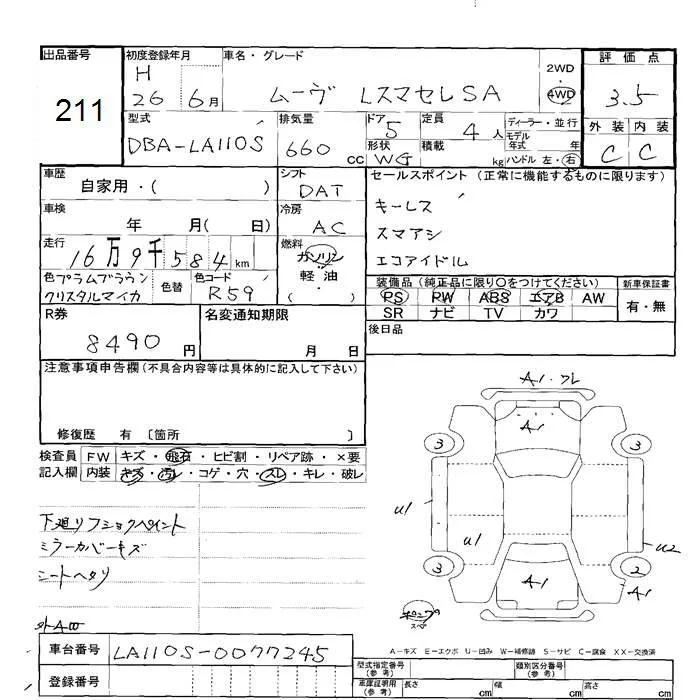 出品番号
211
初度登録年月
H
26 6月
車名・グレード
ムーヴ LスマセレSA
2WD
4WD
評価点
3.5
外装 内装
C C
型式
DBA-LA110S
排気量
660 cc
ドア 5
形状 WG
定員 4人
積載 kg
ディーラー・並行
モデル
年式 年
ハンドル 左・右
車歴
自家用・( )
シフト
DAT
セールスポイント (正常に機能するものに限ります)
キーレス
スマアシ
エコアイドル
車検
年 月( 日)
冷房
AC
走行
16万9千584km
燃料
ガソリン
・
軽油
( )
色 プラムブラウン
クリスタルマイカ
色替
色コード
R59
装備品(純正品に限り○をつけてください)
PS PW ABS エアB AW
SR ナビ TV カワ
新車保証書
有・無
R券
8490円
名変通知期限
月 日
後日品
注意事項申告欄(不具合内容等は具体的に記入して下さい)
修復歴 有 〔箇所 〕
検査員
記入欄
FW キズ・飛石・ヒビ割・リペア跡・×要
内装 キズ・汚レ・コゲ・穴・スレ・キレ・破レ
下廻リフショクペイント
ミラーカバーキズ
シートヘタリ
外AW
A1・フレ
A1
3
3
U1
U1
U2
3
2
A1
A1
スペ
A-キズ E-エクボ U-凹み W-補修跡 S-サビ C-腐食 XX-交換済
車台番号
LA110S-0077245
登録番号
型式指定番号
(参考)
類別区分番号
(参考)
車庫証明用
(参考)
長さ cm
幅 cm
高さ cm